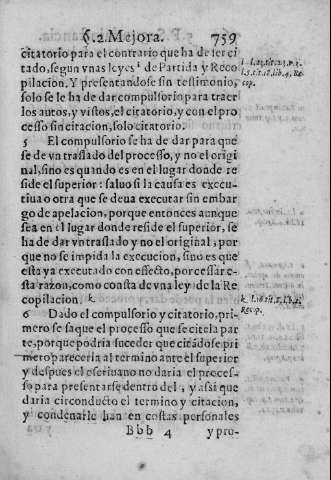 §. 2. Mejora. 759
citatorio para el contrario que ha de ser ci
tado, segun vnas leyes i de Partida y Reco
pilacion. Y presentandose sin testimonio,
solo se le ha de dar compulsorio para traer
los autos, y vistos, el citatorio, y con el pro
cesso sin citacion, solo citatorio.
5 El compulsorio se ha de dar para que
se de vn traslado del processo, y no el origi
nal, sino es quando es en el lugar donde re
side el superior: saluo si la causa es execu-
tiua o otra que se deua executar sin embar
go de apelacion, porque entonces aunque
sea en el lugar donde reside el superior, se
ha de dar vn traslado y no el original, por
que no se impida la execucion, sino es que
esta ya executado con effecto, por cessar es
ta razon, como consta de vna ley de la Re
copilacion. k
6 Dado el compulsorio y citatorio, pri-
mero se saque el processo que se cite la par
te, porque podria suceder que citãdose pri
mero pareceria al termino ante el superior
y despues el escriuano no daria el proces-
so para presentarse dentro del, y assi que
daria circunducto el termino y citacion,
y condenarle han en costas personales
Bbb 4 y pro-
k. l. 6. tit. 18. lib. 4.
Recop.